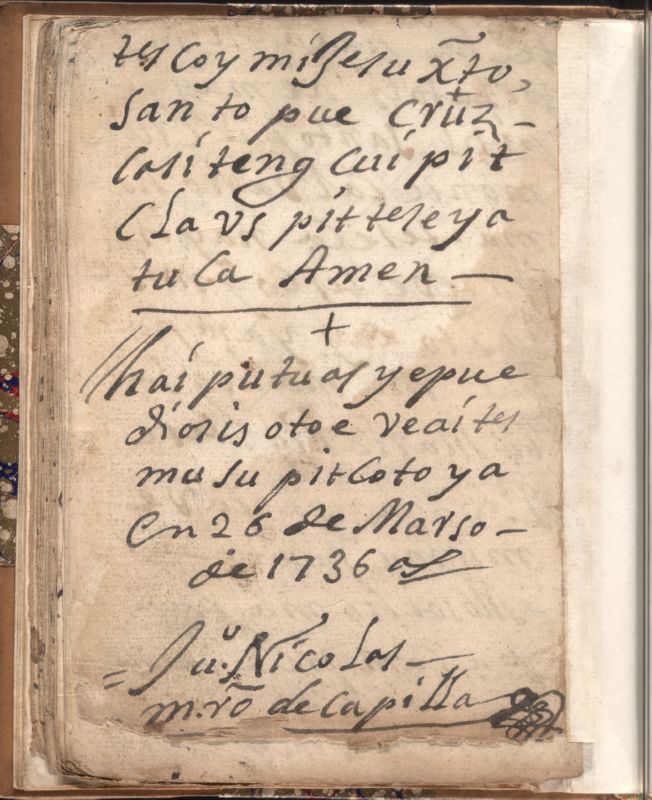 tes coy mi Jesu x̃to,
san to pue cruz
cosi teng cui pit
Cla vs pit teleya
tu ca Amen
+
hai putuas yepue
dios is otoe veai tes
mu su pit coto ya
en 26 de Marso
de 1736 as
= Ju.º Nicolas
m.rõ de capilla